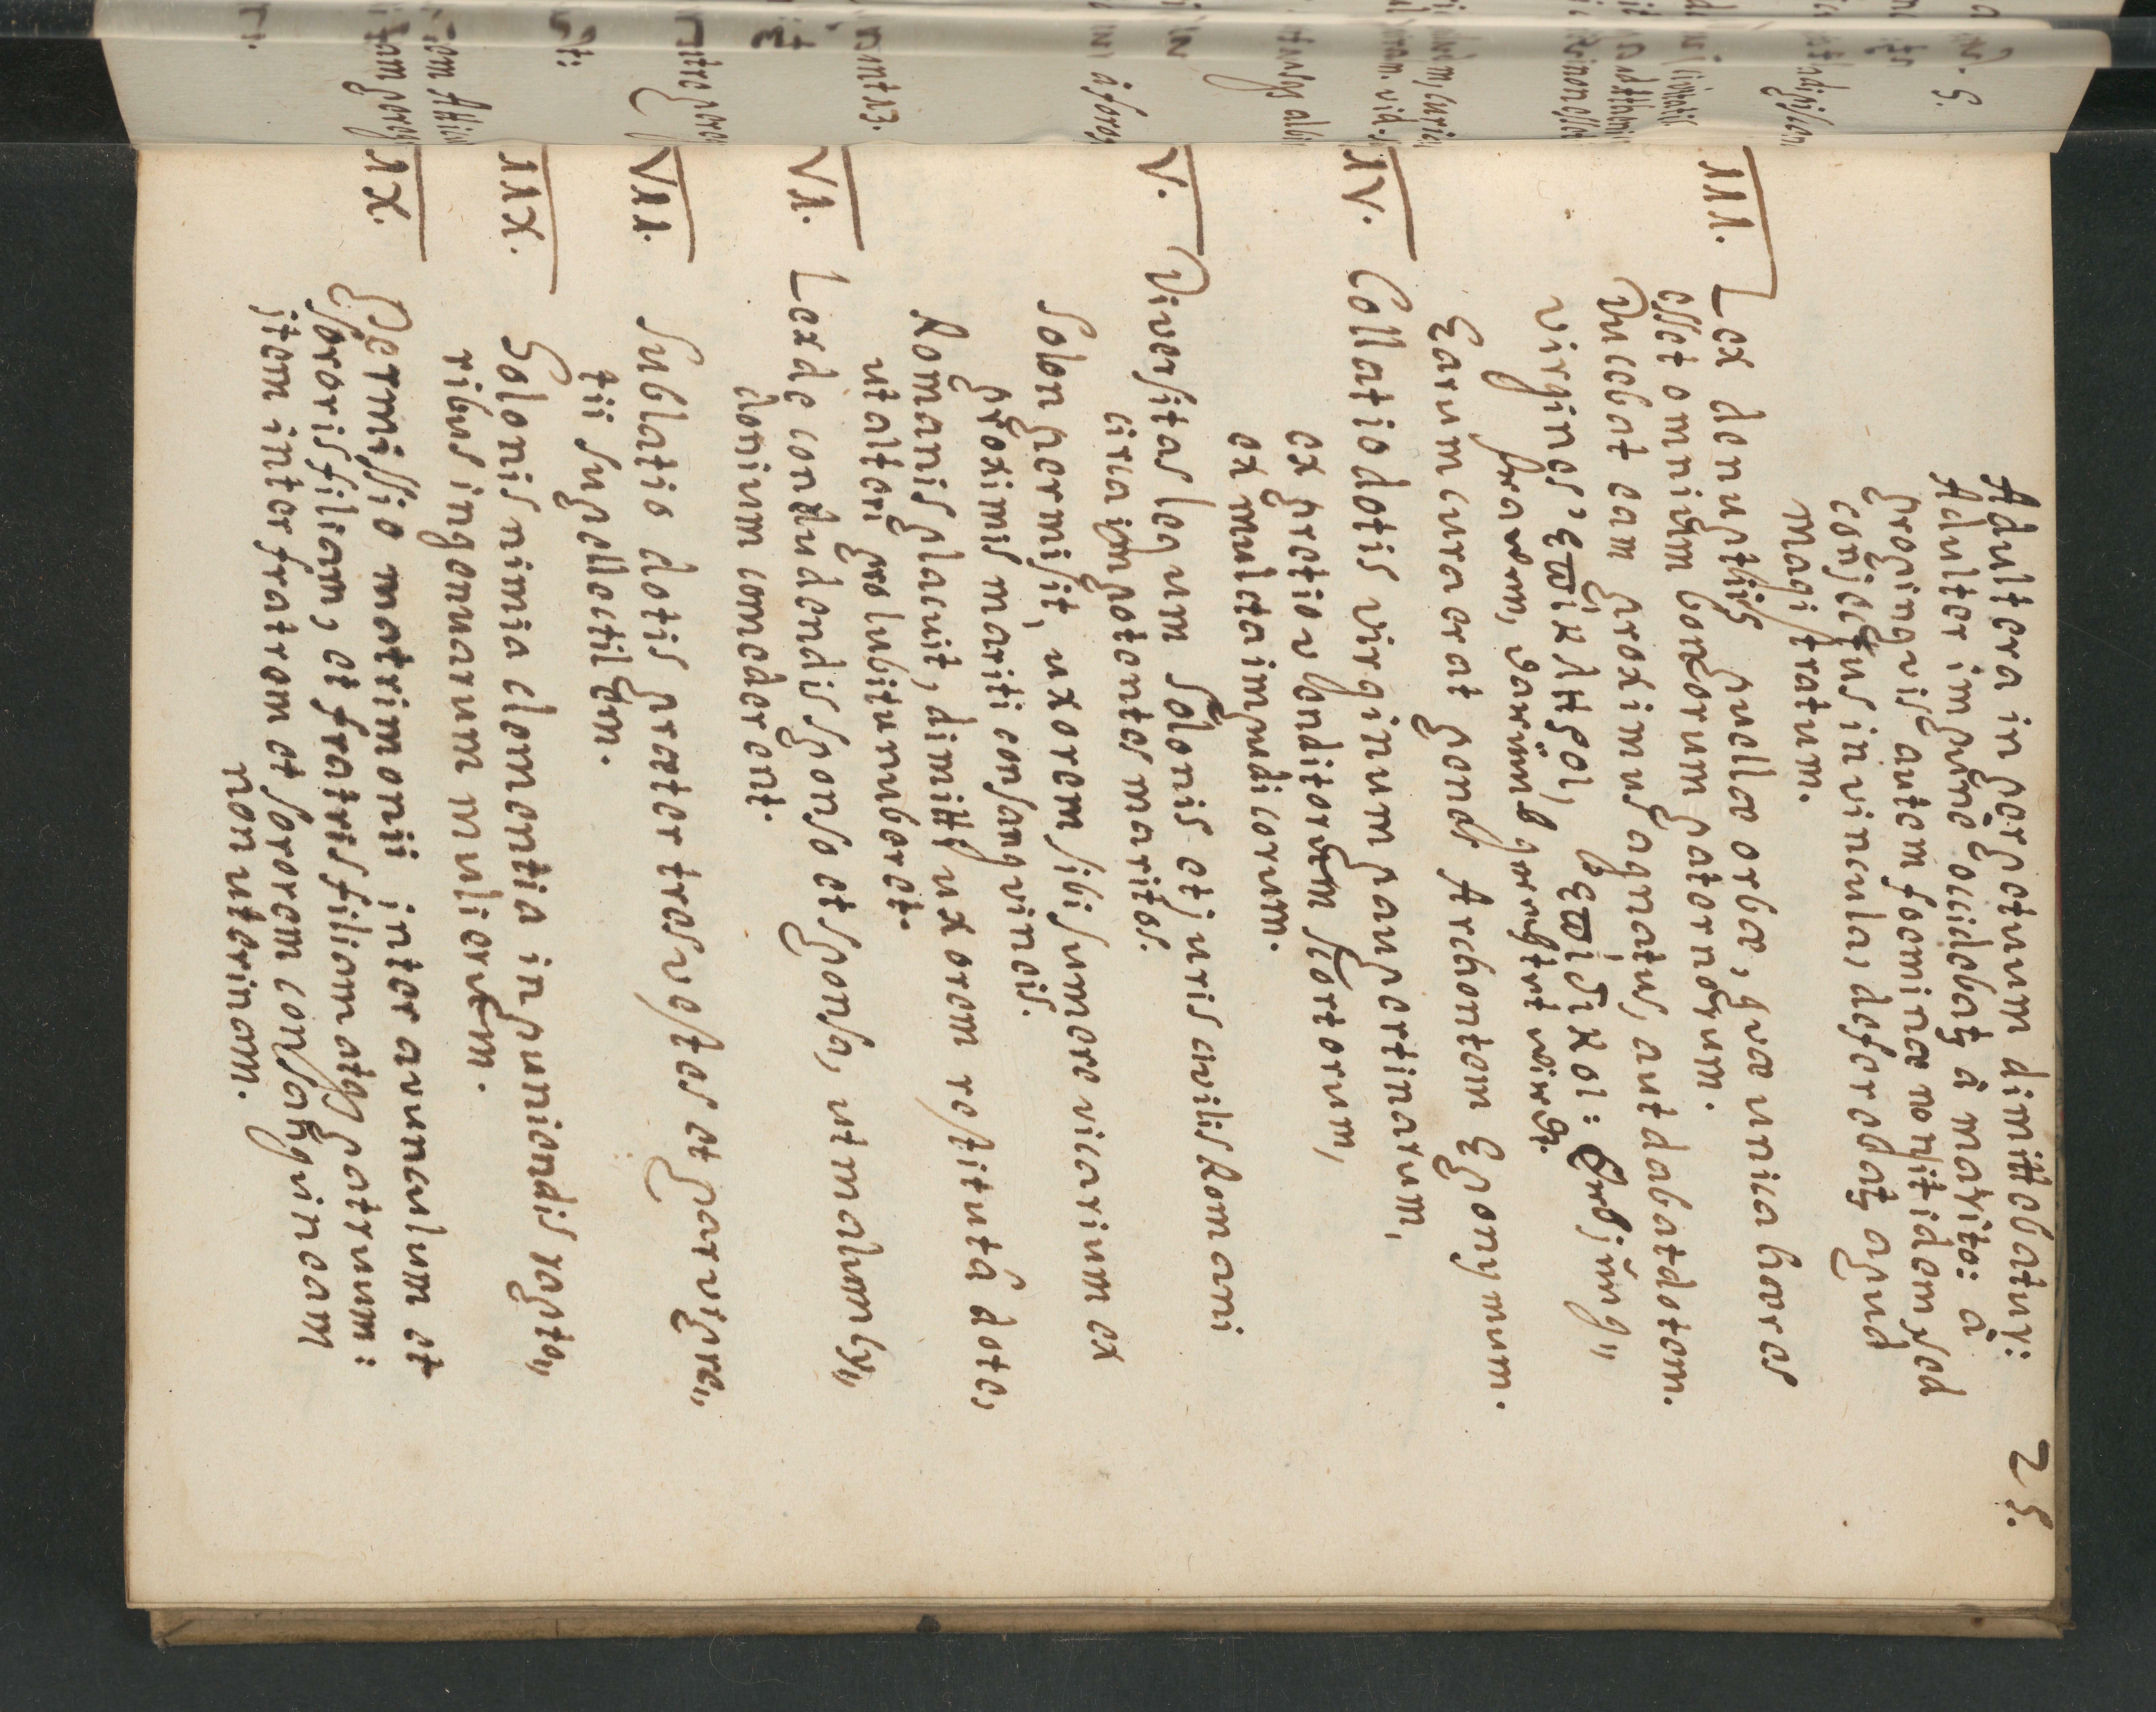 25.
Adultera in perpetuum dimittebatur:
Adulter impune occidebatz à marito: à
propinqvis autem foeminae non itidem, sed
conjectus in vincula, deferebatz apud
magistratum.
III. Lex de nuptiis puellae orbae, qvae unica haeres
esset omnium bonorum paternorum.
Ducebat eam proximus agnatus, aut dabat dotem.
virgines
Earum cura erat penes Archontem Eponymum.
IV. Collatio dotis virginum paupertinarum,
ex pretio venditorum scortorum,
ex mulcta impudicorum.
V. Diversitas legum Solonis et juris civilis Romani
circa impotentes maritos.
Solon permisit, uxorem sibi sumere vicarium ex
proximis mariti consangvineis.
Romanis placuit, dimitti uxorem restitutâ dote,
ut alteri pro lubitu nuberet.
VI. Lex de condudendis sponso et sponsa, ut malum Cy„
donium comederent.
VII. Sublatio dotis praeter tres vestes et parvi pre„
tii supellectilem.
IIX. Solonis nimia clementia in puniendis rapto„
ribus ingenuarum mulierum.
IX. Permissio matrimonii inter avunculum et
sororis filiam, et fratris filiam atq; patruum:
item inter fratrem et sororem consangvineam
non uterinam.